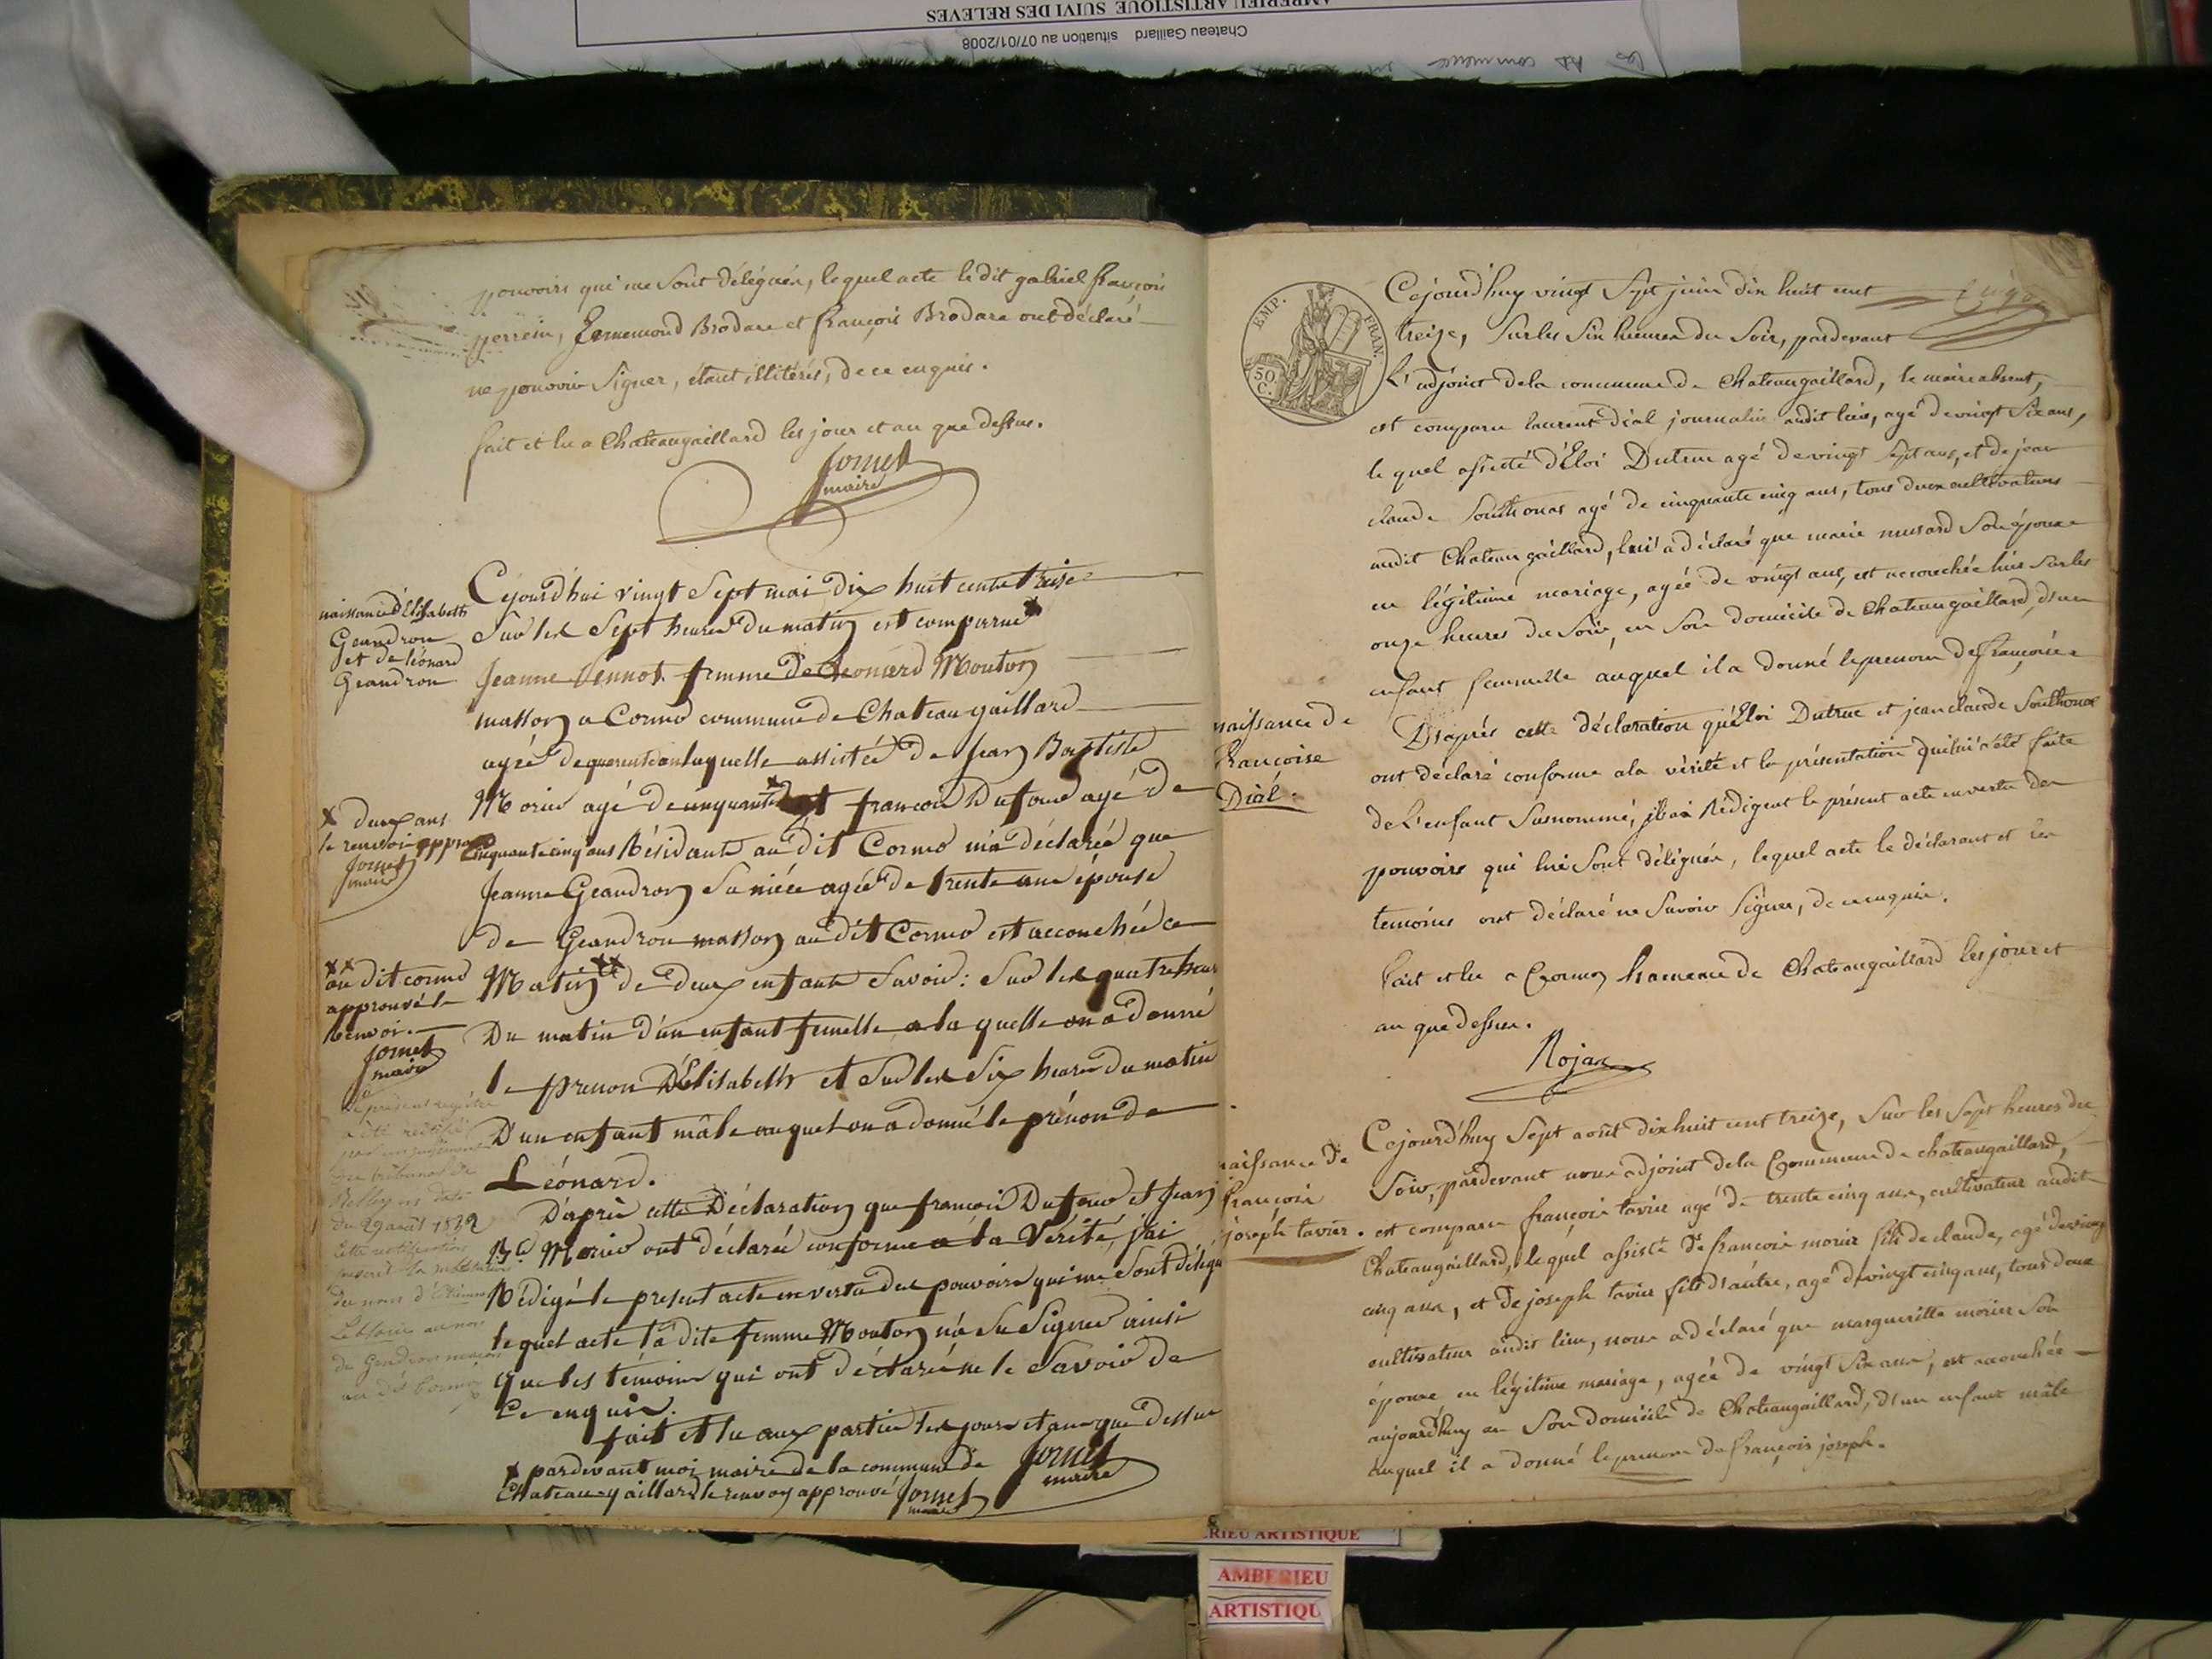 AMBERIEU ARTISTIQUE SUIVI DES RELEVES
Chateau Gaillard situation au 07/01/2008
pouvoirs qui me sont délégués, lequel acte le dit gabriel françois
perrein, Ennemond Brodare et françois Brodare ont déclaré
ne pouvoir signer, étant illitérés, de ce enquis.
fait et lu a Chateaugaillard les jour et an que dessus.
Jornet
maire
naissance d'Elisabeth
Geandron
et de léonard
Geandron
Cejourd'hui vingt Sept mai dix huit cents treise
Sur les Sept heures du matin est comparue x
Jeanne Vennot femme de Leonard Mouton
masson a Cormo commune de Chateau gaillard
agée de quarente ans laquelle assistée de Jean Baptiste
Morier agé de cinquante x et françois Dufour agé de
x deux ans
le renvoi approuvé
Jornet
maire
Cinquante cinq ans Résidants au dit Cormo m'a déclarée que
Jeanne Geandron Sa niéce agée de trente ans épouse
de Geandron masson au dit Cormo est accouchée ce
xx au dit cormo
approuvé le
Renvoi.
Jornet
maire
Matin xx de deux enfants Savoir : Sur les quatre heures
Du matin d'un enfant femelle a la quelle on a donné
le prenon D'Elisabeth et Sur les Six heures du matin
D'un enfant mâle auquel on a donné le prénon de
Léonard.
le présent registre
a été rectifié
par un jugement
du tribunal de
Belley en date
du 29 août 1832
Cette rectification
du nom d'Etienne
au nom
de Gendron maçon
au dit Cormo
D'après cette Déclaration que françois Dufour et Jean
Bte Morier ont déclarée conforme a la Vérité, j'ai
Rédigé le present acte en vertu des pouvoirs qui me Sont délégués
lequel acte la dite femme Mouton n'a Su Signer ainsi
que les témoins qui ont déclarée ne le Savoir de
Ce enquis.
fait et lu aux parties les jours et an que dessus
x pardevant moi maire de la commune de
Chateau-gaillard le renvoy approuvé Jornet
maire
Jornet
maire
EMP. FRAN.
50 C.
Cejourd'huy vingt Sept juin dix huit cent
treize, Sur les Six heures du Soir, pardevant
L'adjoint de la commune de Chateaugaillard, le maire absent,
est comparu laurent dial journalier audit lieu, agé de vingt Six ans,
le quel assisté d'Eloi Dutruc agé de vingt Sept ans, et de jean
claude Southonax agé de cinquante cinq ans, tous deux cultivateurs
audit Chateaugaillard, lui a déclaré que marie musard Son épouse
en légitime mariage, agée de vingt ans, est accouchée hier Sur les
onze heures du Soir, en Son domicile de Chateaugaillard, d'un
enfant femmelle auquel il a donné le prenom de françoise
naissance de
françoise
Diàl.
D'après cette déclaration qu'Eloi Dutruc et jean claude Southonax
ont déclaré conforme a la vérité et la présentation qui lui a été faite
de L'enfant Susnommé, il a Rédigent le présent acte en vertu des
pouvoirs qui lui Sont délégués, lequel acte le déclarant et les
temoins ont déclaré ne Savoir Signer, de ce enquis.
fait et lu a Cormoz hameau de Chateaugaillard les jour et
an que dessus.
Rojax
naissance de
françois
joseph tavier.
Cejourd'huy Sept août dix huit cent treize, Sur les Sept heures du
Soir, pardevant nous adjoint de la Commune de chateaugaillard,
est comparu françois tavier agé de trente cinq ans, cultivateur audit
Chateaugaillard, lequel assisté de françois morier fils de claude, agé de vingt
cinq ans, et de joseph tavier fils d'autre, agé de vingt cinq ans, tous deux
cultivateur audit lieu, nous a déclaré que margueritte morier Son
épouse en légitime mariage, agée de vingt Six ans, est accouchée
aujourd'huy en Son domicile de Chateaugaillard, d'un enfant mâle
auquel il a donné le prenom de françois joseph.
AMBERIEU ARTISTIQUE
AMBERIEU
ARTISTIQU